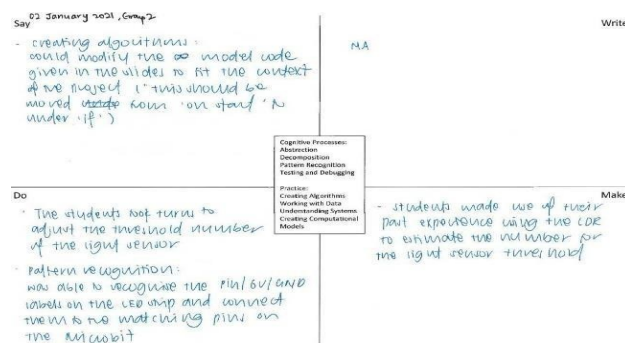 02 January 2021, Group 2
Say
- creating algorithms:
could modify the model code
given in the slides to fit the context
of the project ("this should be
moved from 'on start' to
under 'if')
Write
NA
Cognitive Processes:
Abstraction
Decomposition
Pattern Recognition
Testing and Debugging
Practice:
Creating Algorithms
Working with Data
Understanding Systems
Creating Computational
Models
Do
- The students took turns to
adjust the threshold number
of the light sensor
- pattern recognition:
was able to recognise the Pin/5V/GND
labels on the LED strip and connect
them to the matching pins on
the microbit
Make
- students made use of their
past experience using the LDR
to estimate the number for
the light sensor threshold